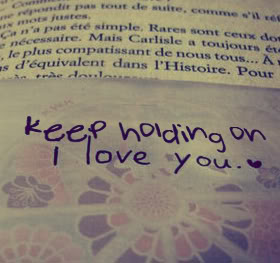 Comm
ne répondit pas tout de suite, comme s'il
mots justes.
Ça n'a pas été simple. Rares sont ceux do
e nécessaire. Mais Carlisle a toujours été
, le plus compatissant de nous tous... À
s d'équivalent dans l'Histoire. Pour
très
keep holding on
I love you.